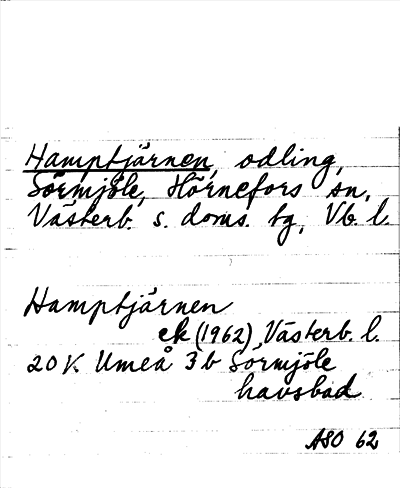 Hamptjärnen, odling,
Sörmjöle, Hörnefors sn,
Västerb. s. doms. tg, Vb. l.
Hamptjärnen
ek (1962), Västerb. l.
20 K. Umeå 3b Sörmjöle
havsbad
ASO 62